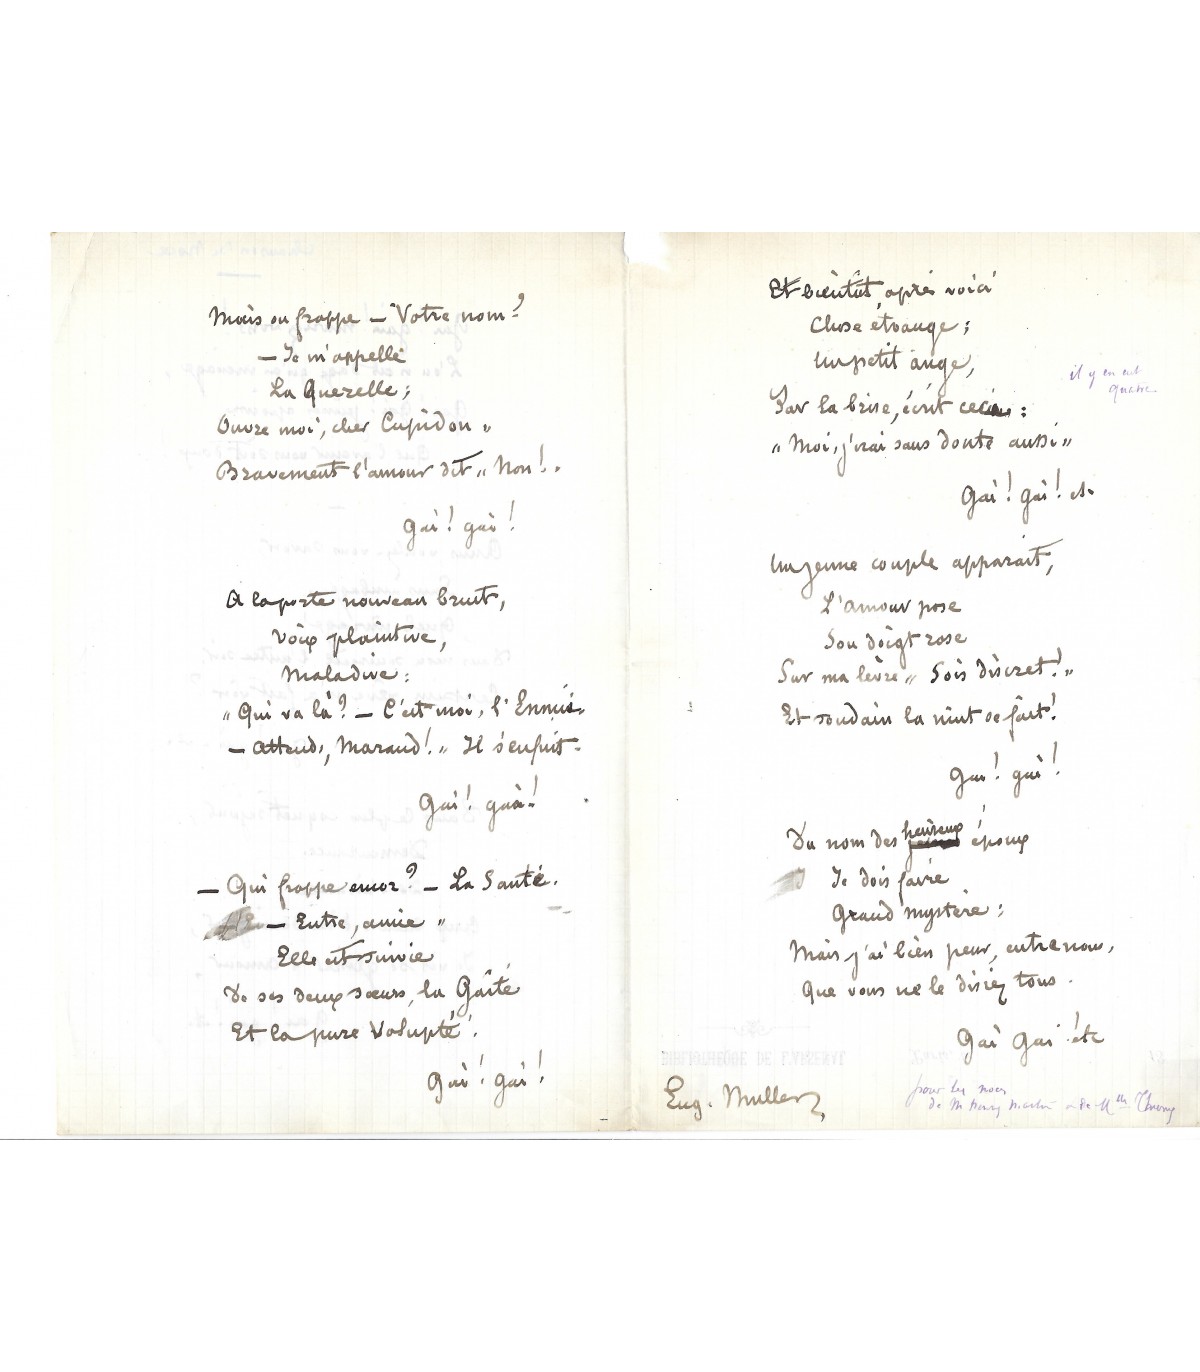 Mais on frappe — "Votre nom?
— Je m'appelle
La Querelle;
Ouvre moi, cher Cupidon "
Bravement l'amour dit " Non! "
Gai! gai!
A la porte nouveau bruit,
Voix plaintive,
Maladive:
" Qui va là? — C'est moi, l'Ennui.
— Attends, Maraud! " Il s'enfuit.
Gai! gai!
— Qui frappe encor? — La Santé.
— Entre, amie "
Elle est suivie
De ses deux sœurs, la Gaîté
Et la pure Volupté!
Gai! gai!
Et bientôt, après voici
Chose étrange;
Un petit ange,
Par la brise, écrit ceci:
" Moi, j'irai sans doute aussi "
Gai! gai! etc
il y en eut
quatre
Un jeune couple apparaît,
L'amour pose
Son doigt rose
Sur ma lèvre " Sois discret! "
Et soudain la nuit se fait!
Gai! gai!
Du nom des heureux époux
Je dois faire
Grand mystère;
Mais j'ai bien peur, entre nous,
Que vous ne le disiez tous.
Gai Gai! etc
Eug. Muller
pour les noces
de M Henry Martin et de Mlle